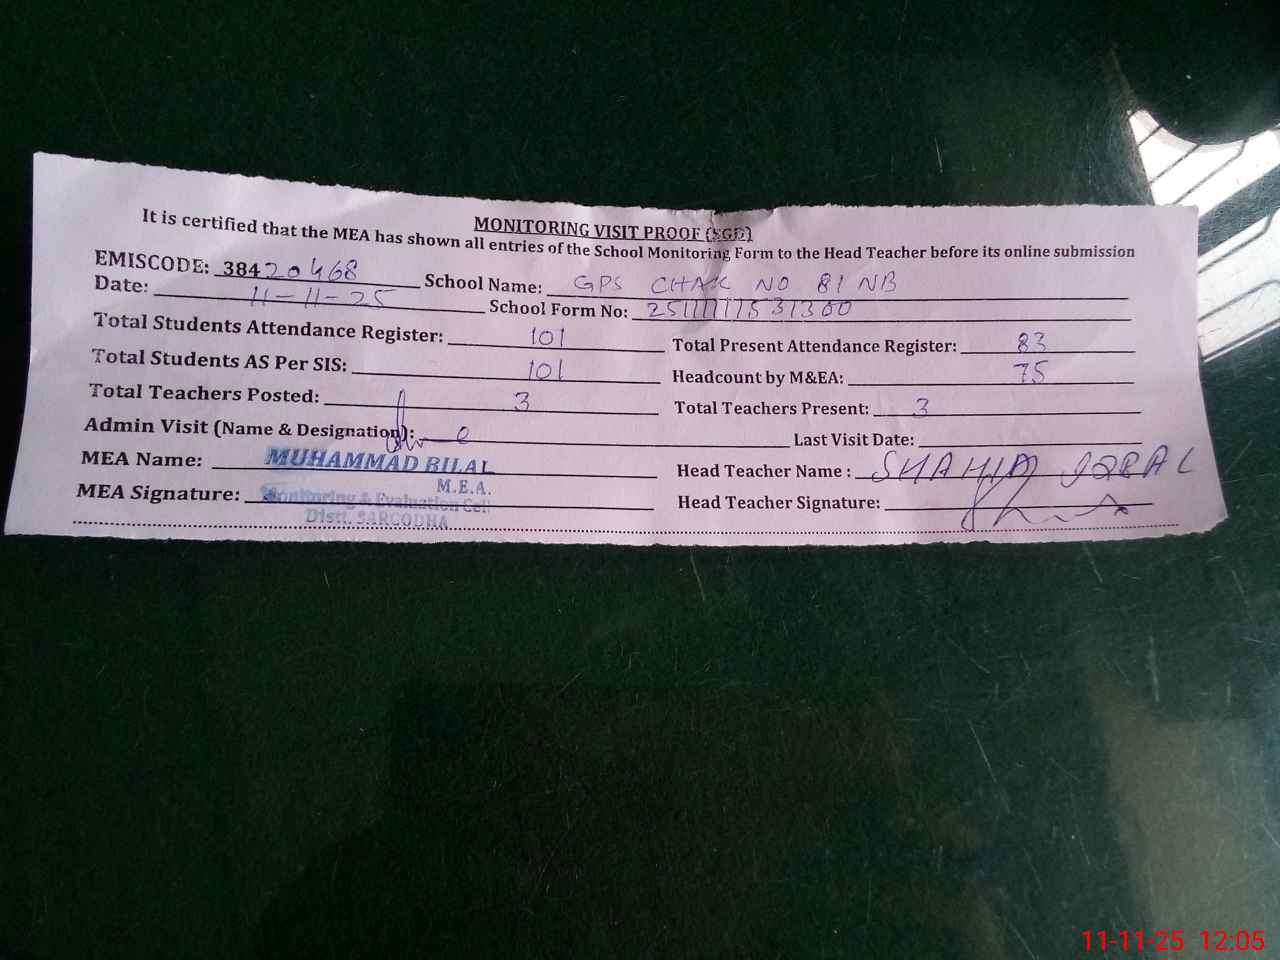 MONITORING VISIT PROOF (SGD)
It is certified that the MEA has shown all entries of the School Monitoring Form to the Head Teacher before its online submission
EMISCODE: 38420468 School Name: GPS CHAK NO 81 NB
Date: 11-11-25 School Form No:
Total Students Attendance Register: 101 Total Present Attendance Register: 83
Total Students AS Per SIS: 101 Headcount by M&EA: 75
Total Teachers Posted: 3 Total Teachers Present: 3
Admin Visit (Name & Designation): 0 Last Visit Date:
MEA Name: MUHAMMAD BILAL Head Teacher Name : SHAHID IQBAL
M.E.A.
MEA Signature: Monitoring & Evaluation Cell Head Teacher Signature:
Distt. SARGODHA
11-11-25 12:05